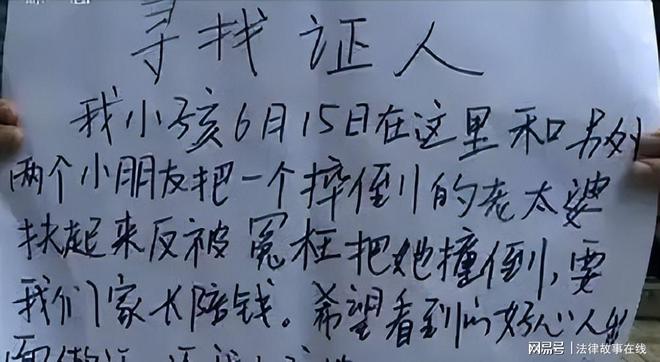 寻找证人
我小孩6月15日在这里和另外
两个小朋友把一个摔倒的老太婆
扶起来反被冤枉把她撞倒,要
我们家长陪钱。希望看到的好心人出
网易号 | 法律故事在线